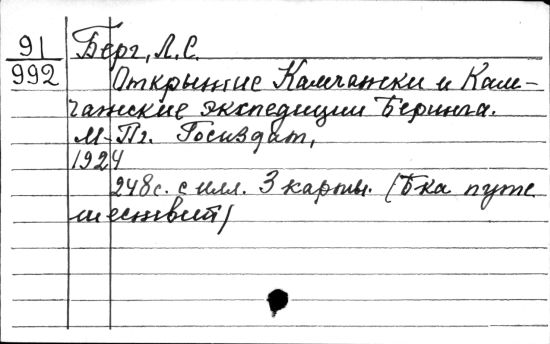 91
992
Берг, Л.С.
Открытие Камчатки и Кам-
чатские экспедиции Беринга.
М-Пг. Госиздат,
1924
248с. с илл. 3 карты. (Б-ка путе
шествий)